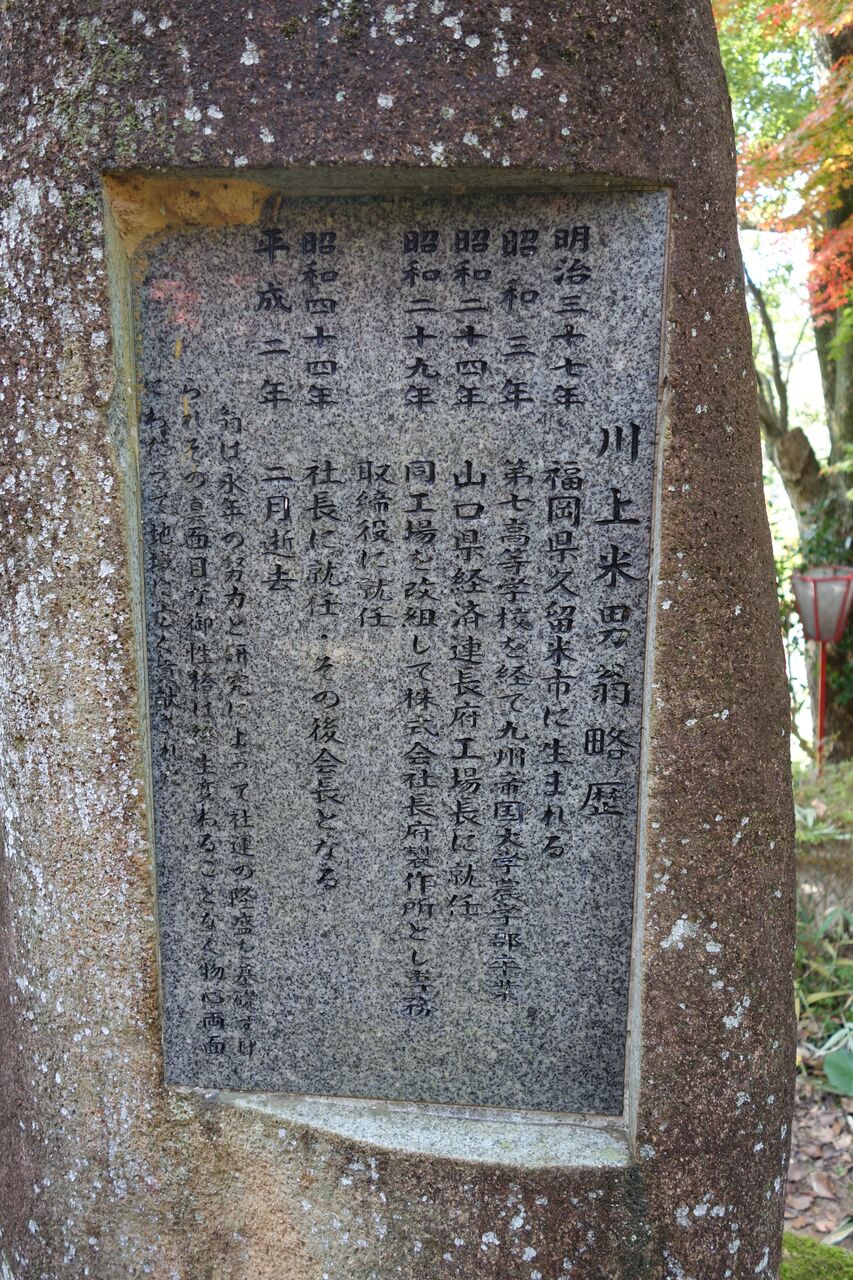 川上米男翁略歴
明治三十七年 福岡県久留米市に生まれる
昭和三年 第七高等学校を経て九州帝国大学農学部卒業
昭和二十四年 山口県経済連長府工場長に就任
昭和二十九年 同工場を改組して株式会社長府製作所とし専務
取締役に就任
昭和四十四年 社長に就任・その後会長となる
平成二年 二月逝去
翁は永年の努力と研究によって社運の隆盛を基礎ずけ
られその真面目な御性格は終生変わることなく物心両面
にわたって地域に広く貢献された